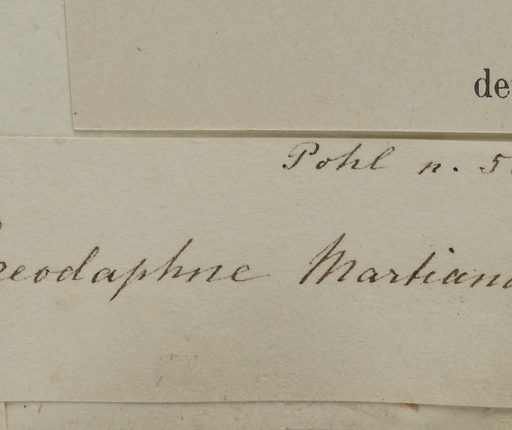 de
Pohl n. 5
reodaphne Martiana